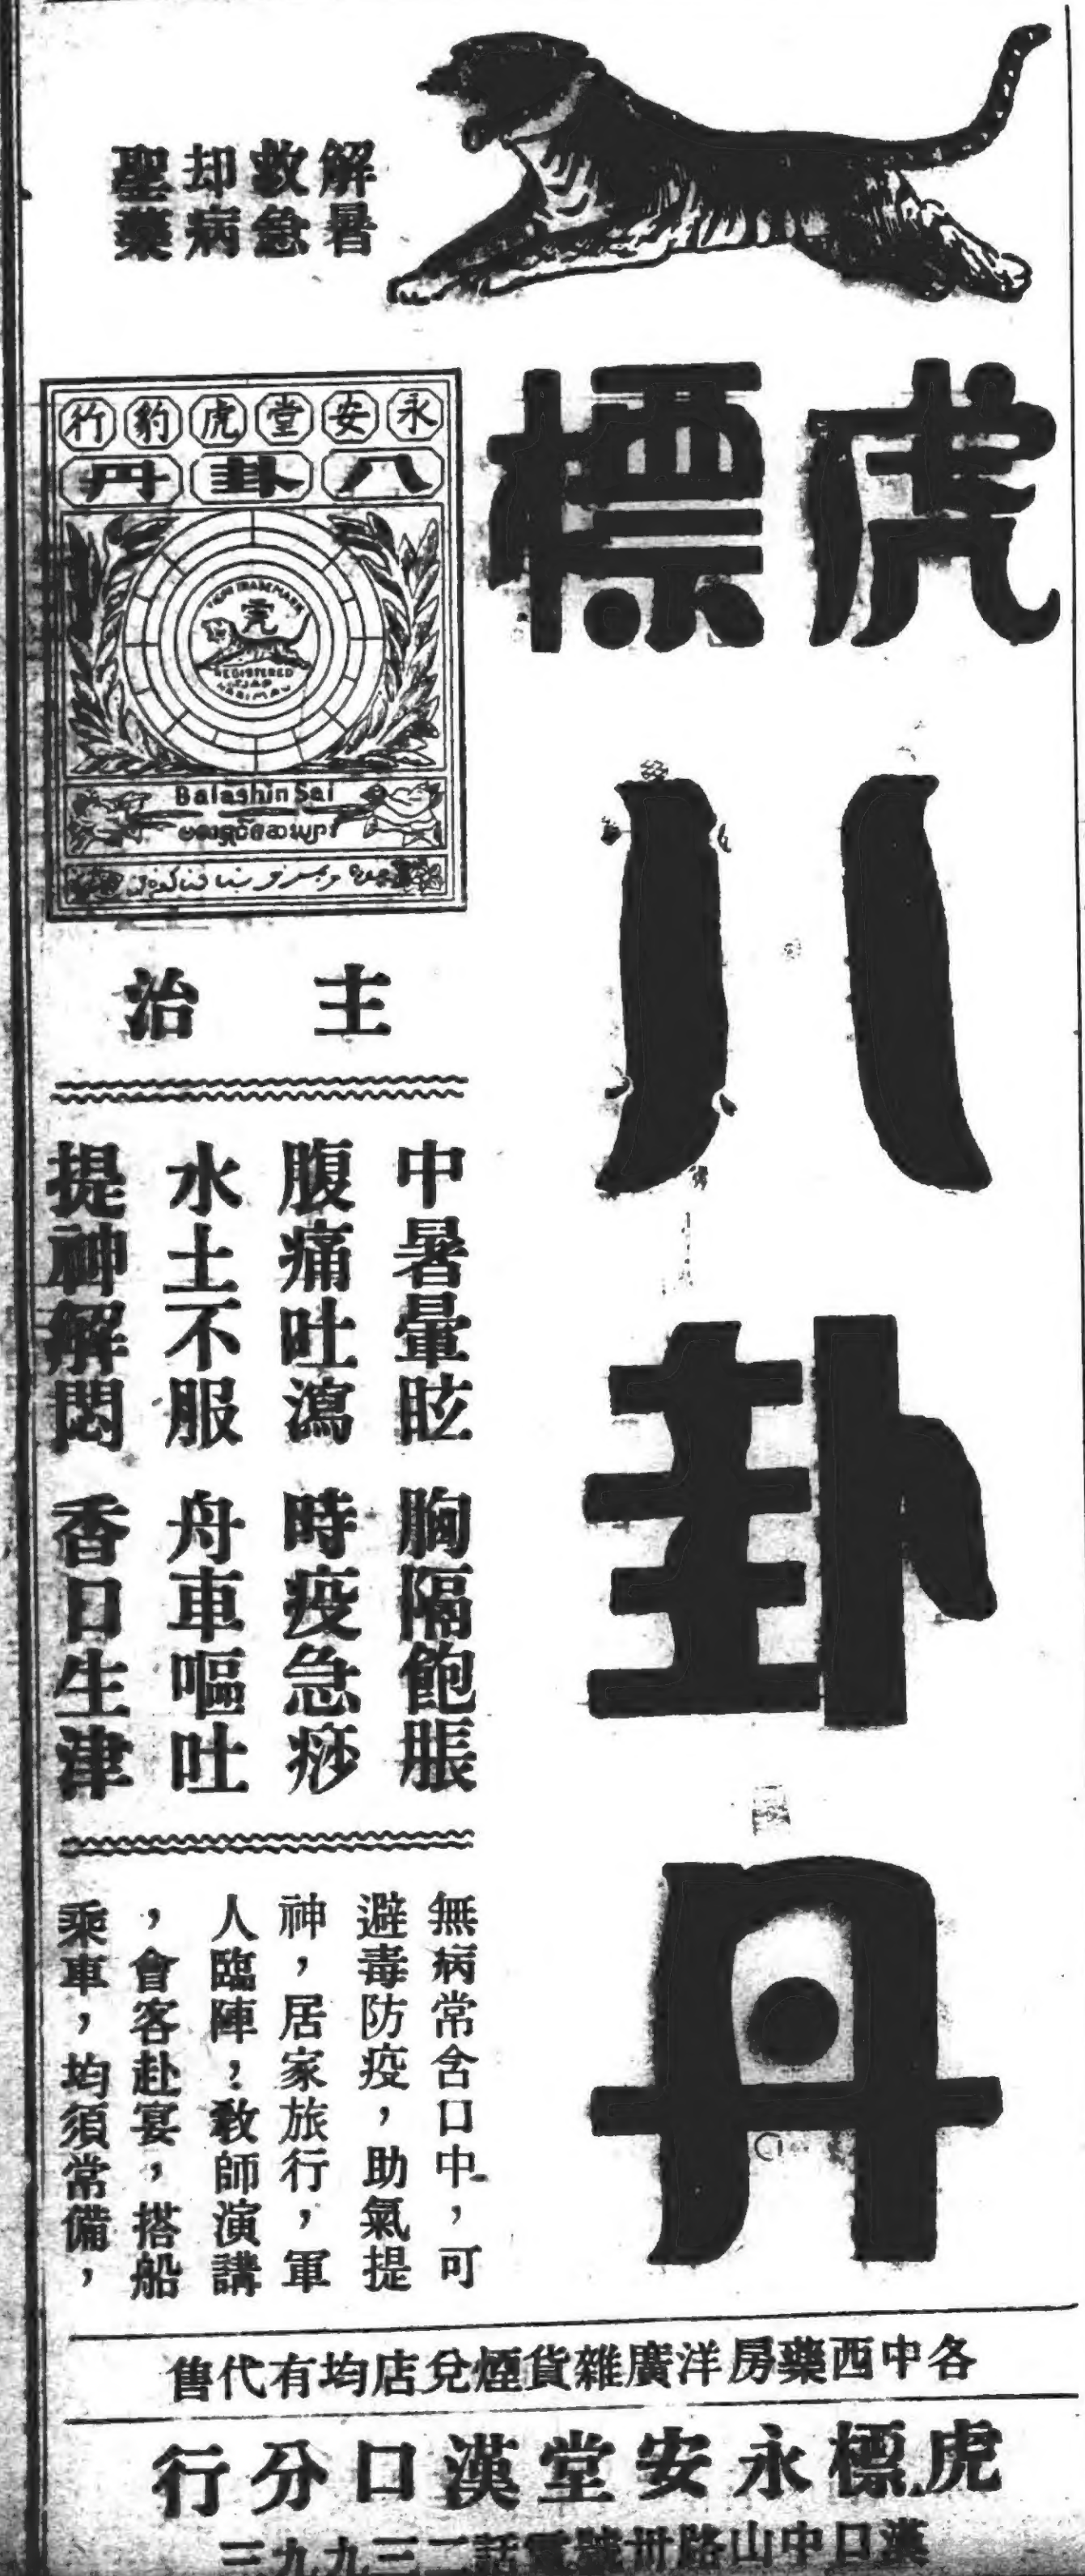 解暑
救急
却病
聖藥
虎標
八卦丹
永安堂虎豹行
八卦丹
虎
TRADE MARK
REGISTERED
TJAP
HARIMAU
Balashin Sai
主治
中暑暈眩 胸隔飽脹
腹痛吐瀉 時疫急痧
水土不服 舟車嘔吐
提神解悶 香口生津
無病常含口中,可
避毒防疫,助氣提
神,居家旅行,軍
人臨陣,教師演講
,會客赴宴,搭船
乘車,均須常備,
各中西藥房洋廣雜貨煙兌店均有代售
虎標永安堂漢口分行
漢口中山路卅號電話二三九九三